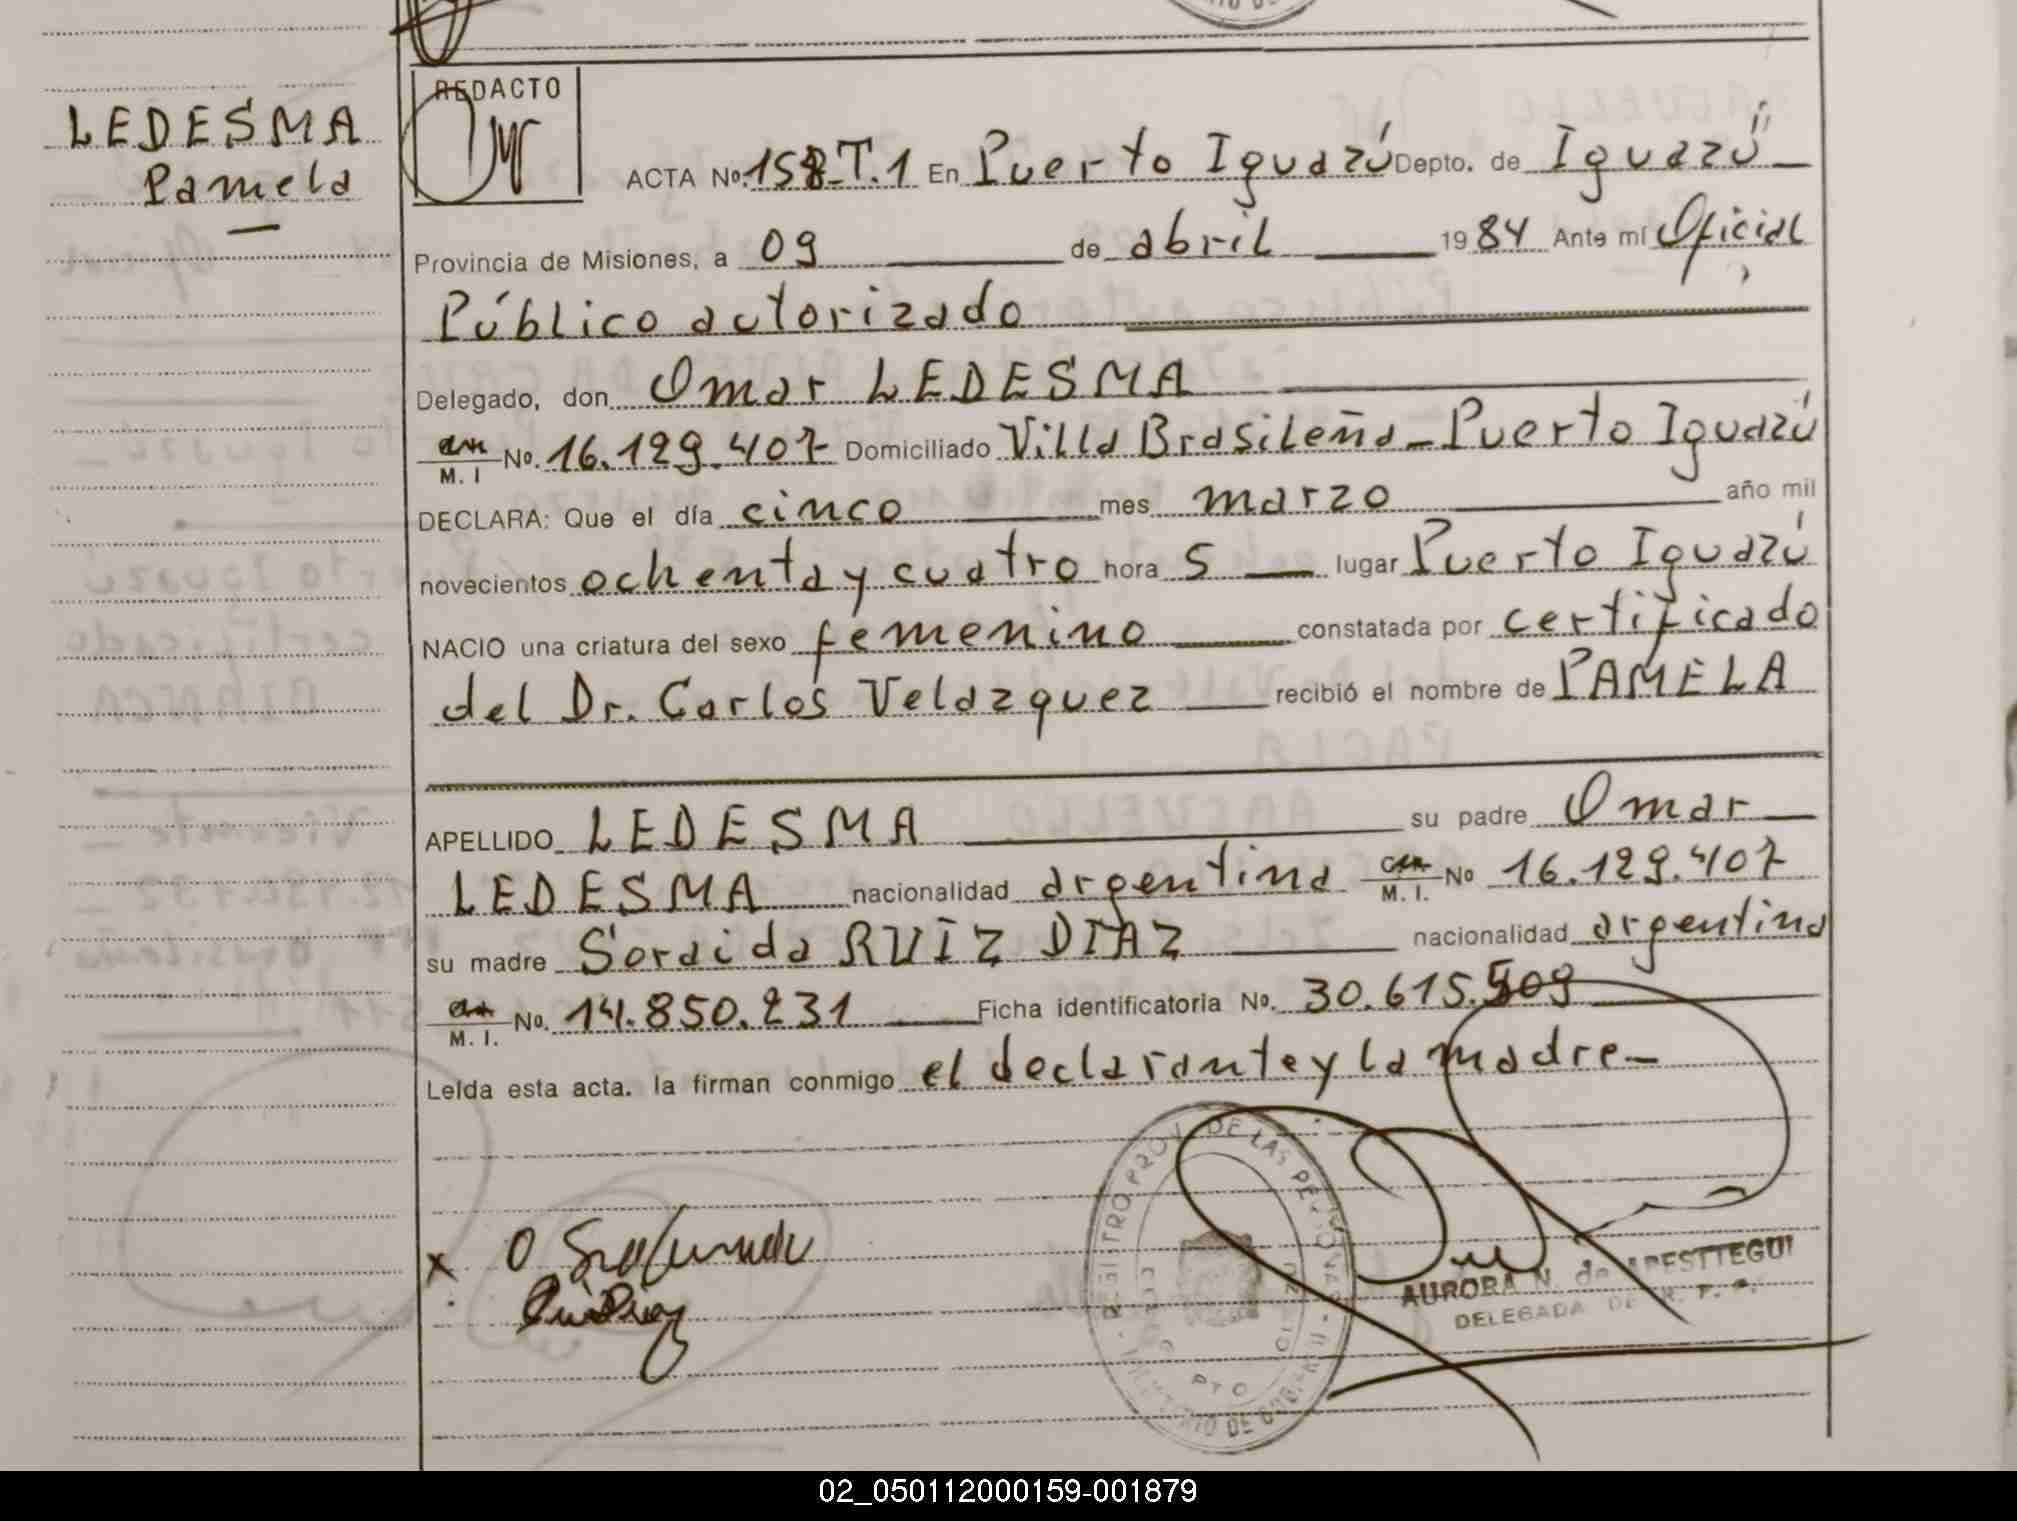 LEDESMA
Pamela
REDACTO
ACTA Nº 158-T.1 En Puerto Iguazú Depto. de Iguazú
Provincia de Misiones, a 09 de abril 1984 Ante mí Oficial
Público autorizado
Delegado, don Omar LEDESMA
M. I Nº. 16.129.407 Domiciliado Villa Brasileña - Puerto Iguazú
DECLARA: Que el día cinco mes marzo año mil
novecientos ochenta y cuatro hora 5 lugar Puerto Iguazú
NACIO una criatura del sexo femenino constatada por certificado
del Dr. Carlos Velazquez recibió el nombre de PAMELA
APELLIDO LEDESMA su padre Omar
LEDESMA nacionalidad argentina M. I. Nº 16.129.407
su madre Soraida RUIZ DIAZ nacionalidad argentina
M. I. Nº. 14.850.231 Ficha identificatoria Nº. 30.615.509
Leída esta acta. la firman conmigo el declarante y la madre-
x
REGISTRO PROV. DE LAS PERSONAS
PTO
AURORA N. de APESTTEGUI
DELEGADA DE R. P. P.
02_050112000159-001879